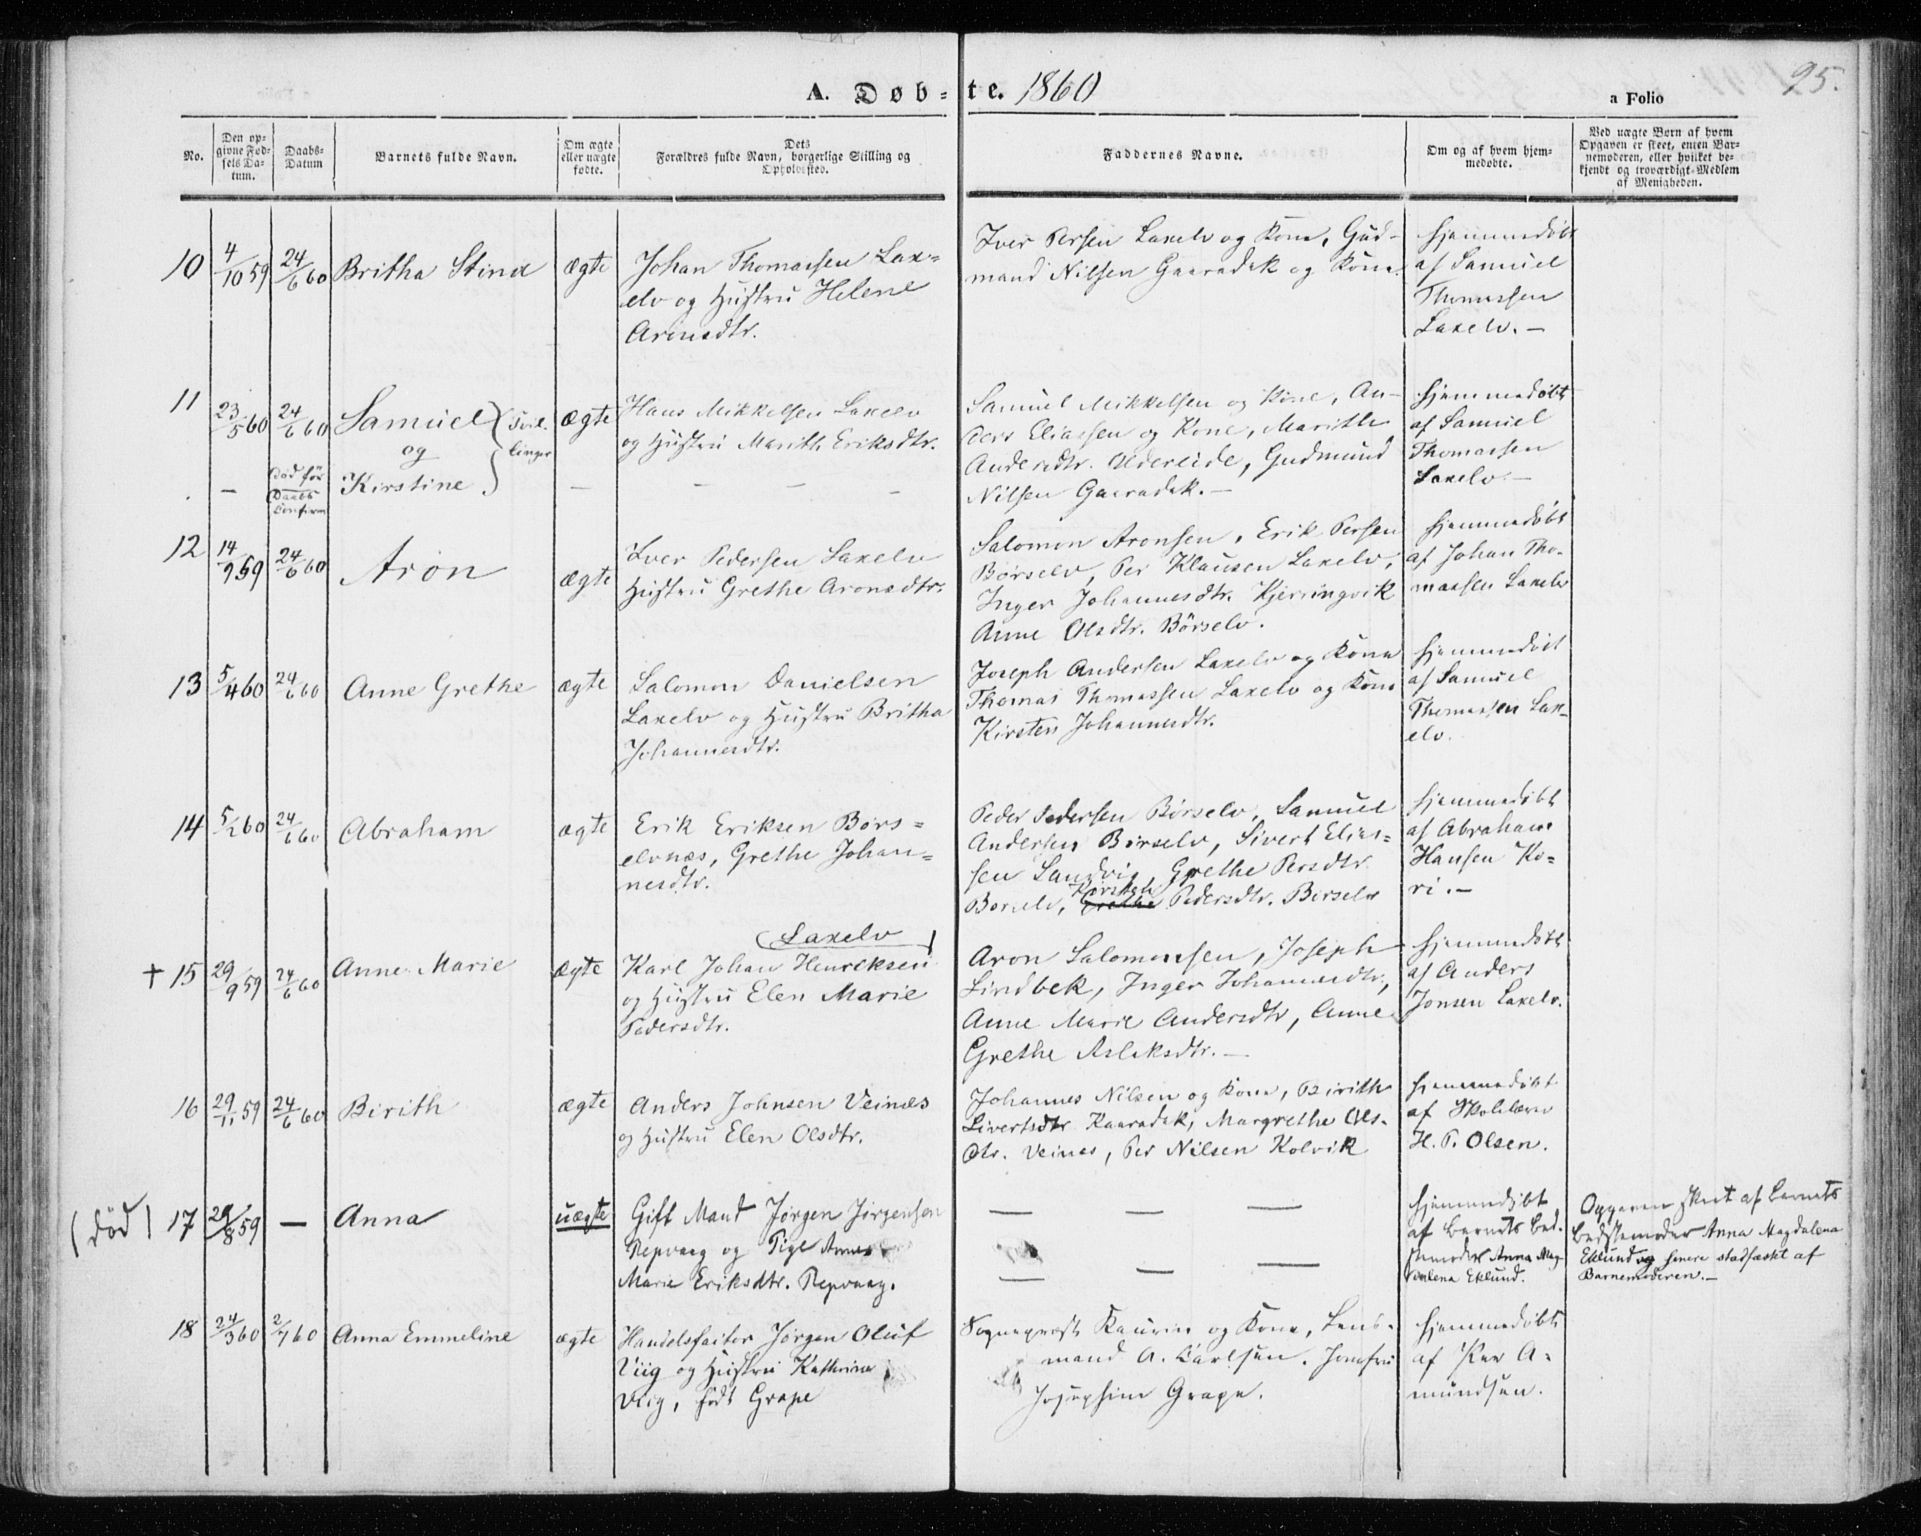 A. Døb-te. 1860
95.
a Folio
No.
Den op-
givne Fød-
sels Da-
tum.
Daabs-
Datum
Barnets fulde Navn.
Om ægte
eller uægte
fødte.
Dets
Forældres fulde Navn, borgerlige Stilling og
Opholdssted.
Faddernes Navne.
Om og af hvem hjem-
medøbte.
Ved uægte Børn af hvem
Opgaven er skeet, enten Bar-
nemoderen, eller hvilket be-
kjendt og troværdigt Medlem
af Menigheden.
10
4/10 59
24/6 60
Britha Stina
ægte
Johan Thomassen Lax-
elv og Hustru Helene
Aronsdtr.
Iver Persen Laxelv og Kone, Gud-
mand Nilsen Gaaradak og Kone
hjemmedøbt
af Samuel
Thomassen
Laxelv. –
11
23/5 60
24/6 60
Samuel
og
Kirstine
Tvil-
linger
–
død før
Daabs
Confirm
ægte
–
Hans Mikkelsen Laxelv
og Hustru Marith Eriksdtr.
– – –
Samuel Mikkelsen og Kone, An-
ders Eliassen og Kone, Marithe
Andersdtr. Oldereide, Gudmund
Nilsen Gaaradak. –
hjemmedøbt
af Samuel
Thomassen
Laxelv –
12
14/9 59
24/6 60
Aron
ægte
Iver Pedersen Laxelv
Hustru Grethe Aronsdtr.
Salomon Aronsen, Erik Persen
Børselv, Per Klausen Laxelv,
Inger Johannesdtr. Kjerringvik
Anne Olsdtr. Børselv.
hjemmedøbt
af Johan Tho-
massen Laxelv
13
5/4 60
24/6 60
Anne Grethe
ægte
Salomon Danielsen
Laxelv og Hustru Britha
Johannesdtr.
Joseph Andersen Laxelv og Kone
Thomas Thomassen Laxelv og Kone
Kirsten Johannesdtr.
hjemmedøbt
af Samuel
Thomassen Lax-
elv.
14
5/1 60
24/6 60
Abraham
ægte
Erik Eriksen Børs-
elvnæs, Grethe Johan-
nesdtr.
Peder Pedersen Børselv, Samuel
Andersen Børselv, Sivert Elias-
sen Sandvig, Grethe Persdtr.
Kirsten
Børselv, Grethe Pedersdtr. Børselv
hjemmedøbt
af Abraham
Hansen Ko-
ri. –
+ 15
29/9 59
24/6 60
Anne Marie
ægte
Laxelv
Karl Johan Henriksen
og Hustru Elen Marie
Pedersdtr.
Aron Salomonsen, Joseph
Lindbek, Inger Johannesdtr,
Anne Marie Andersdtr, Anne
Grethe Aslaksdtr. –
hjemmedøbt
af Anders
Jonsen Laxelv.
16
29/11 59
24/6 60
Birith
ægte
Anders Johnsen Veinæs
og Hustru Elen Olsdtr.
Johannes Nilsen og Kone, Birith
Sivertsdtr Kaaradak, Margrethe Ols-
dtr. Veines, Per Nilsen Kolvik
hjemmedøbt
af Skolelærer
H. P. Olsen.
(død) 17
29/8 59
–
Anna
uægte
Gift Mand Jørgen Jørgensen
Repvaag og Pige Anne
Marie Eriksdtr. Repvaag.
– – –
– – –
hjemmedøbt
af Barnets Bed-
stemoder Anna Mag-
dalena Eklund.
Opgaven skeet af Barnets
Bedstemoder Anna Magdalena
Eklund og senere stadfæstet af
Barnemoderen. –
18
24/3 60
2/7 60
Anna Emmeline
ægte
Handelsfactor Jørgen Oluf
Viig og Hustru Kathrine
Viig, født Grape
Sognepræst Kaurin og Kone, Lens-
mand A. Carlsen, Jomfru
Josephine Grape.
hjemmedøbt
af Per A-
mundsen.